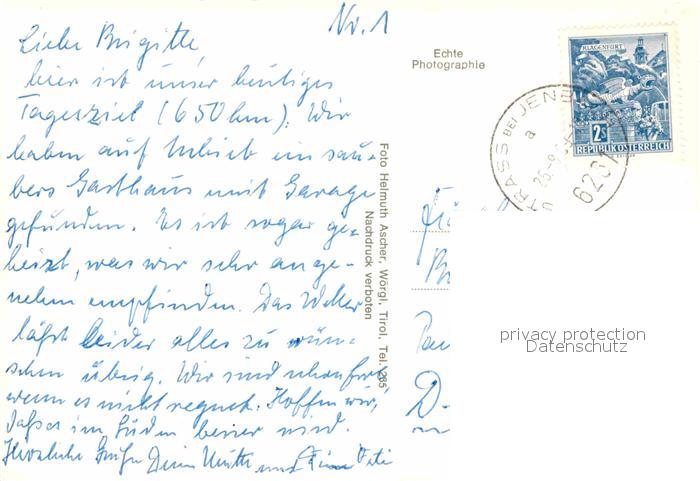 Nr. 1
Liebe Brigitte
hier ist unser heutiges
Tagesziel (650 km). Wir
haben auf Anhieb ein sau-
beres Gasthaus mit Garage
gefunden. Es ist sogar ge-
heizt, was wir sehr ange-
nehm empfinden. Das Wetter
läßt leider alles zu wün-
schen übrig. Wir sind schon froh,
wenn es nicht regnet. Hoffen wir,
daß es im Süden besser wird.
Herzliche Grüße Deine Mutti und
Echte
Photographie
Foto Helmuth Ascher, Wörgl, Tirol, Tel. 285
Nachdruck verboten
KLAGENFURT
2S
REPUBLIK ÖSTERREICH
STRASS BEI JENB
a
620
D-
privacy protection
Datenschutz